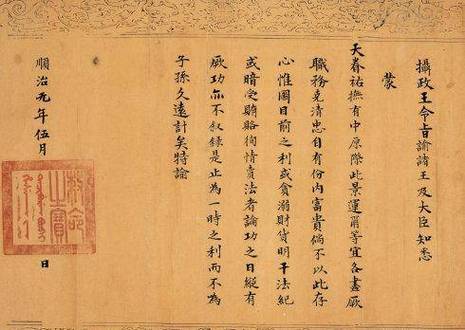 攝政王令旨諭諸王及大臣知悉
蒙
天眷祐撫有中原際此景運爾等宜各盡厥
職務克清忠自有份内富貴倘不以此存
心惟圖目前之利或貪溺財貨明干法紀
或暗受賄賂徇情賣法者論功之日縱有
厥功亦不叙録是止為一時之利而不為
子孫久遠計矣特諭
順治元年伍月 日
命
之寶